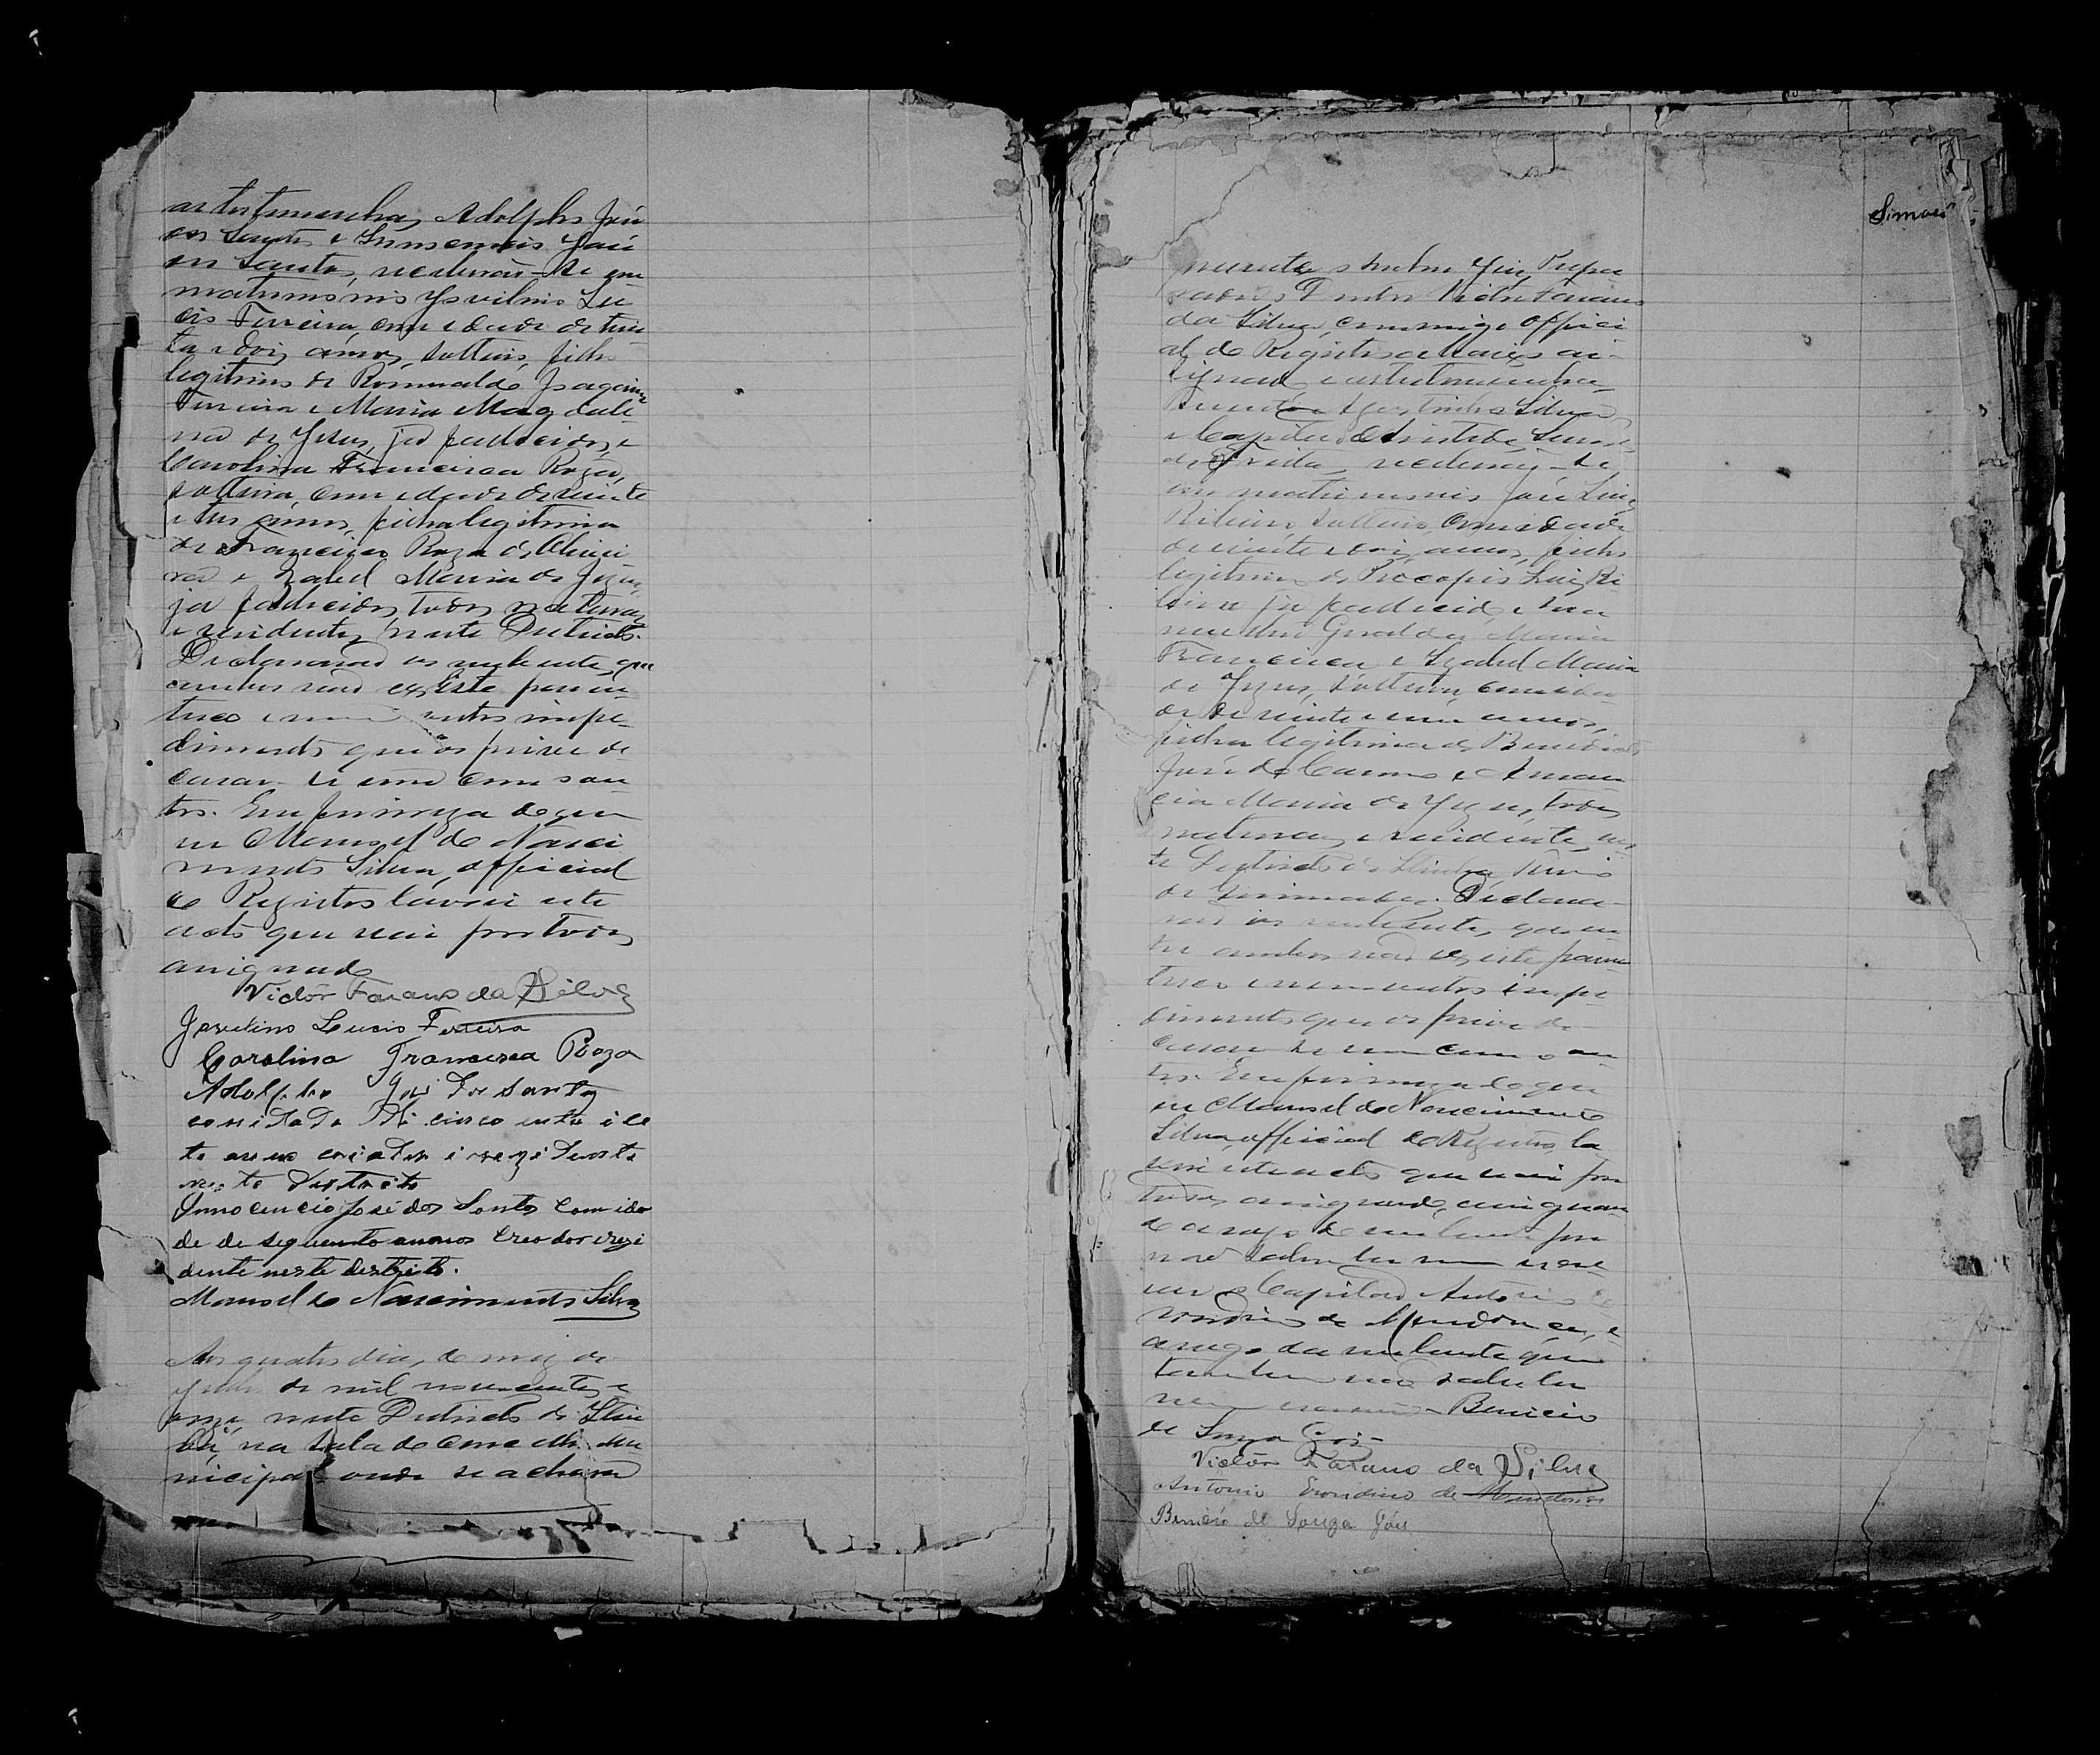 as testemunhas Adolpho José
dos Santos e Innocencio José
dos Santos, receberão-se em
matrimonio Jesvilino Lu
cio Ferreira, com idade de trin
ta e dois annos, solteiro, filho
legitimo de Romualdo Joaquim
Ferreira e Maria Magdale
na de Jesus, já fallecidos, e
Carolina Francisca Roza,
solteira, com idade de vinte
e tres annos, filha legitima
de Francisco Roza de Olivei
ra e Izabel Maria de Jezus,
já fallecidos, todos naturaes
e residentes neste Districto.
Declararão os nubentes que
ambos não existe paren
tesco e nem outros impe
dimento que os prive de
casar-se um com o ou
tro. Em firmeza do que
eu Manoel do Nasci
mento Silva, official
do Registro lavrei este
acto que vai por todos
assignado
Victor Farano da Silva
Jesulino Lucio Ferreira
Carolina Francisca Roza
Adolpho José dos Santos
com idade de cincoenta e se
te annos criador e rezidente
neste Destricto
Innocencio José dos Santos Com ida
de de sequento annos Creador erezi
dente neste destrito.
Manoel do Nascimento Silva
Aos quatro dias do mez de
de mil novecentos e
onze neste Districto de
na sala do Conselho Mu
nicipal onde se achava
Simões
presente o
Victor Farano
da Silva, commigo Offici
al do Registro a
signado e as testemunhas
Silva
e Capitão
de Freitas, receberão-se
em matrimonio José Luiz
Ribeiro, solteiro, com idade
de vinte e dois annos, filho
legitimo de Procopio Luiz Ri
beiro já fallecido, e sua
mulher Maria
Francisca e Izabel Maria
de Jezus, solteira, com ida
de de vinte e um annos,
filha legitima de Benedicto
José do Carmo e Aman
cia Maria de Jezus, todos
naturaes e residentes nes
te Districto de
de Declara
rão os nubentes, que en
tre ambos não existe paren
tesco e nem outros impe
dimento que os prive de
casar-se um com o ou
tro. Em firmeza do que
eu Manoel do Nascimento
Silva, official do Registro, la
vrei este acto que vai por
todos assignado, assignan
do a rogo do nubente por
não saber ler nem escre
ver o Capitão Antonio
de Mendonça, e
a rogo da nubente que
tambem não sabe ler
nem escrever Benicio
de Souza Góis
Victor Farano da Silva
Antonio Erondino de Mendonça
Benicio de Souza Góis